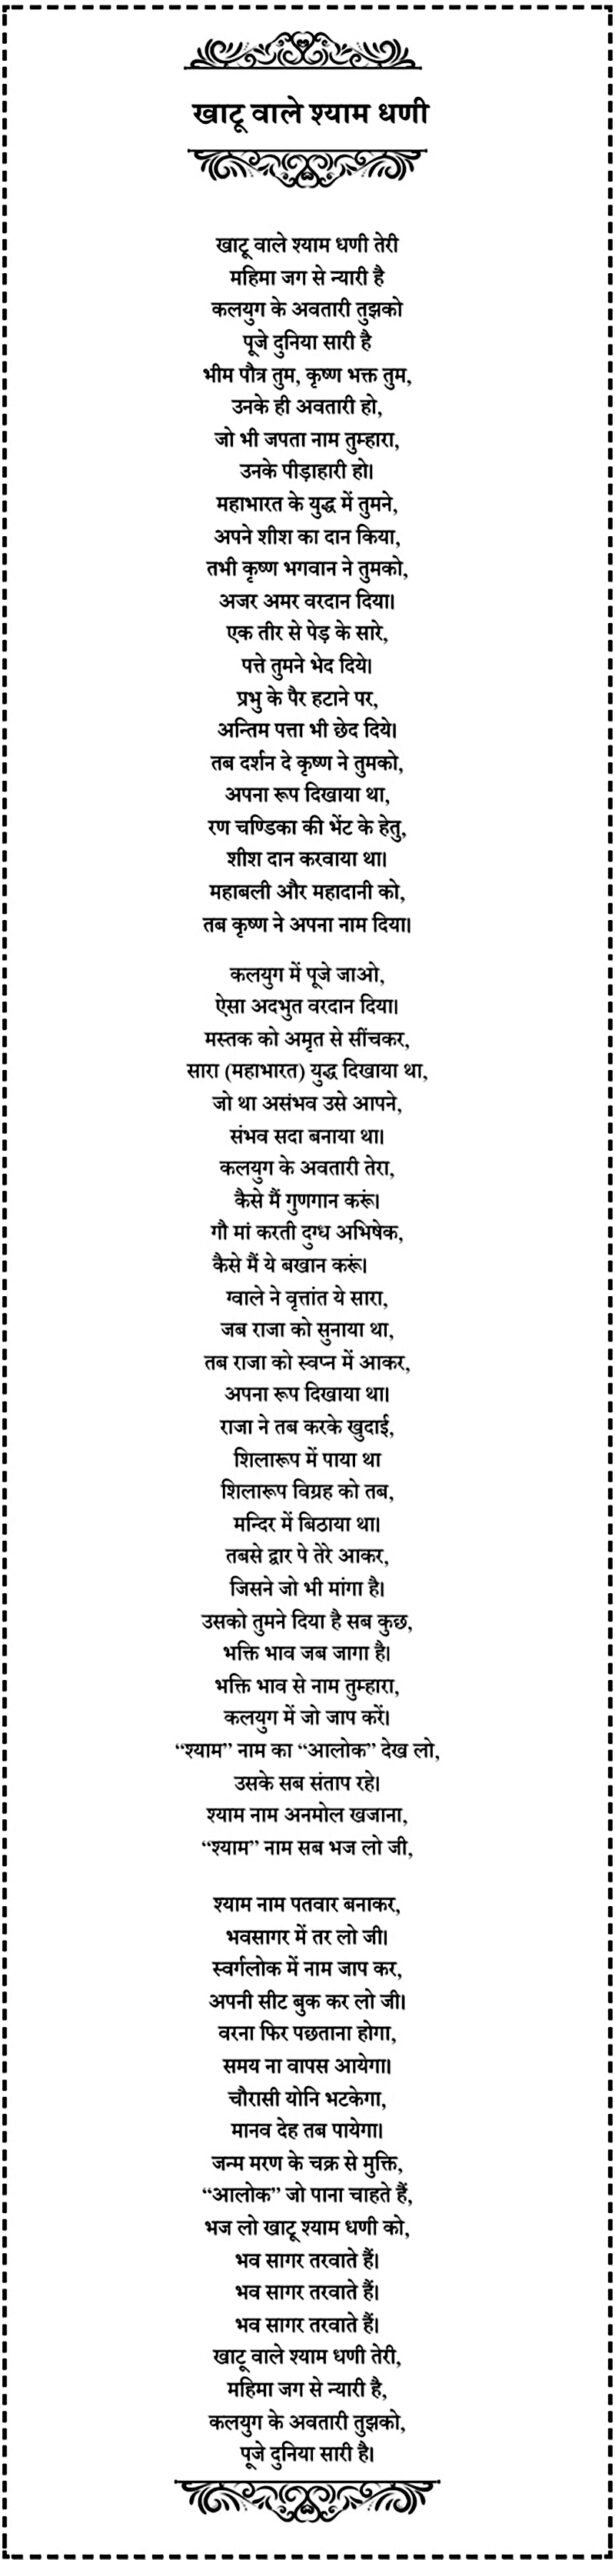 खाटू वाले श्याम धणी
खाटू वाले श्याम धणी तेरी
महिमा जग से न्यारी है
कलयुग के अवतारी तुझको
पूजे दुनिया सारी है
भीम पौत्र तुम, कृष्ण भक्त तुम,
उनके ही अवतारी हो,
जो भी जपता नाम तुम्हारा,
उनके पीड़ाहारी हो।
महाभारत के युद्ध में तुमने,
अपने शीश का दान किया,
तभी कृष्ण भगवान ने तुमको,
अजर अमर वरदान दिया।
एक तीर से पेड़ के सारे,
पत्ते तुमने भेद दिये।
प्रभु के पैर हटाने पर,
अन्तिम पत्ता भी छेद दिये।
तब दर्शन दे कृष्ण ने तुमको,
अपना रूप दिखाया था,
रण चण्डिका की भेंट के हेतु,
शीश दान करवाया था।
महाबली और महादानी को,
तब कृष्ण ने अपना नाम दिया।
कलयुग में पूजे जाओ,
ऐसा अदभुत वरदान दिया।
मस्तक को अमृत से सींचकर,
सारा (महाभारत) युद्ध दिखाया था,
जो था असंभव उसे आपने,
संभव सदा बनाया था।
कलयुग के अवतारी तेरा,
कैसे मैं गुणगान करूं।
गौ मां करती दुग्ध अभिषेक,
कैसे मैं ये बखान करूं।
ग्वाले ने वृत्तांत ये सारा,
जब राजा को सुनाया था,
तब राजा को स्वप्न में आकर,
अपना रूप दिखाया था।
राजा ने तब करके खुदाई,
शिलारूप में पाया था
शिलारूप विग्रह को तब,
मन्दिर में बिठाया था।
तबसे द्वार पे तेरे आकर,
जिसने जो भी मांगा है।
उसको तुमने दिया है सब कुछ,
भक्ति भाव जब जागा है।
भक्ति भाव से नाम तुम्हारा,
कलयुग में जो जाप करें।
“श्याम” नाम का “आलोक” देख लो,
उसके सब संताप रहे।
श्याम नाम अनमोल खजाना,
“श्याम” नाम सब भज लो जी,
श्याम नाम पतवार बनाकर,
भवसागर में तर लो जी।
स्वर्गलोक में नाम जाप कर,
अपनी सीट बुक कर लो जी।
वरना फिर पछताना होगा,
समय ना वापस आयेगा।
चौरासी योनि भटकेगा,
मानव देह तब पायेगा।
जन्म मरण के चक्र से मुक्ति,
“आलोक” जो पाना चाहते हैं,
भज लो खाटू श्याम धणी को,
भव सागर तरवाते हैं।
भव सागर तरवाते हैं।
भव सागर तरवाते हैं।
खाटू वाले श्याम धणी तेरी,
महिमा जग से न्यारी है,
कलयुग के अवतारी तुझको,
पूजे दुनिया सारी है।